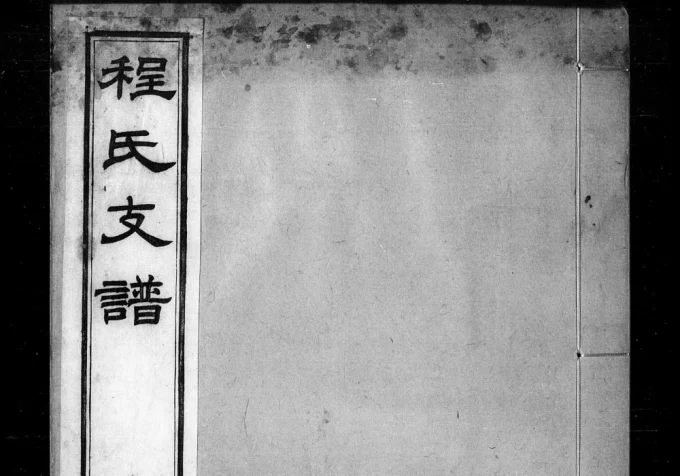 程氏支譜